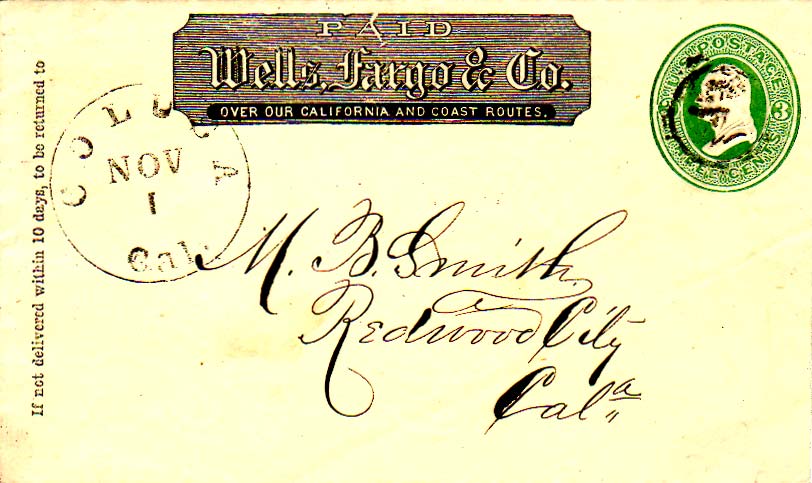 PAID
Wells, Fargo & Co.
OVER OUR CALIFORNIA AND COAST ROUTES.
U.S. POSTAGE
3
THREE CENTS
COLUSA
NOV
1
Cal.
If not delivered within 10 days, to be returned to
M. B. Smith
Redwood City
Cala